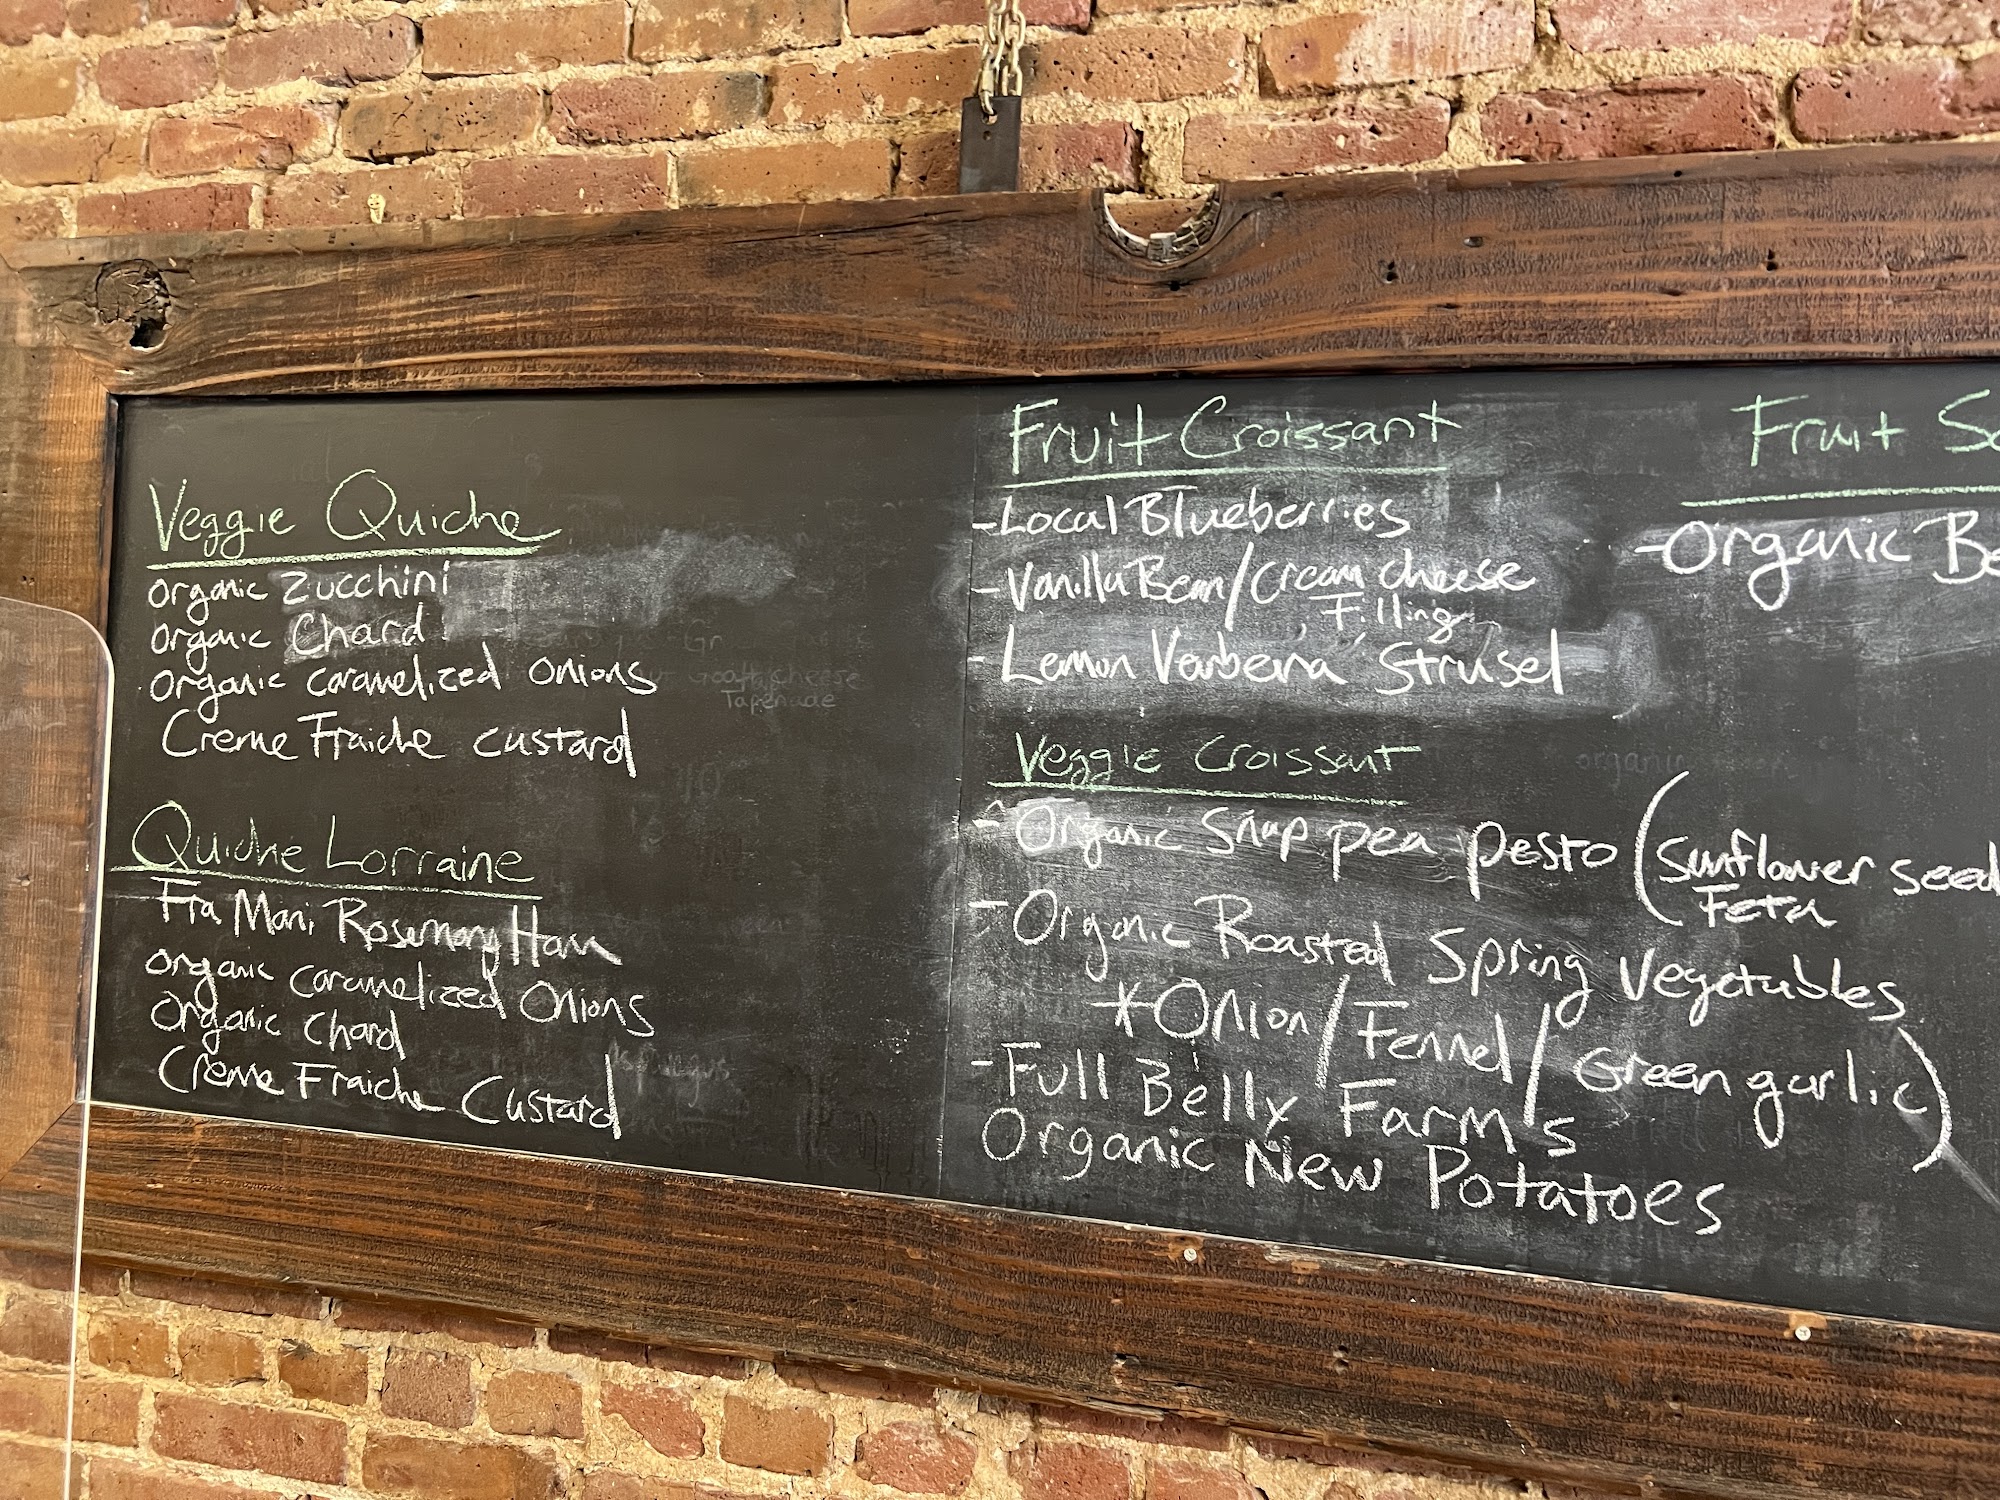 Veggie Quiche
organic Zucchini
organic Chard
organic caramelized onions
Creme Fraiche custard
Quiche Lorraine
Fra Mani Rosemary Ham
organic caramelized Onions
organic chard
Creme Fraiche Custard
Fruit Croissant
- Local Blueberries
- Vanilla Bean/cream cheese
Filling
- Lemon Verbena Strusel
Veggie Croissant
- Organic Snap pea pesto (sunflower seed
Feta
- Organic Roasted Spring Vegetables
*Onion/Fennel/Green garlic)
- Full Belly Farm's
Organic New Potatoes
Fruit
- Organic
Goat cheese
Tapenade
organic